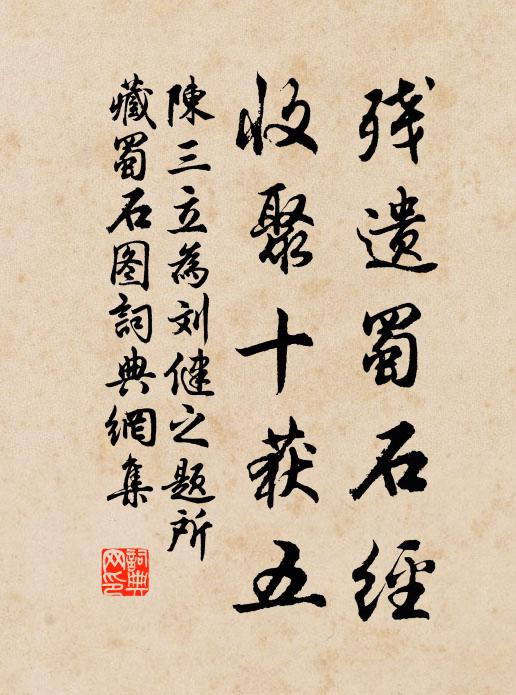 残遗蜀石經
收聚十获五
陳三立為刘健之题所
藏蜀石图詞典網集
詞典网印